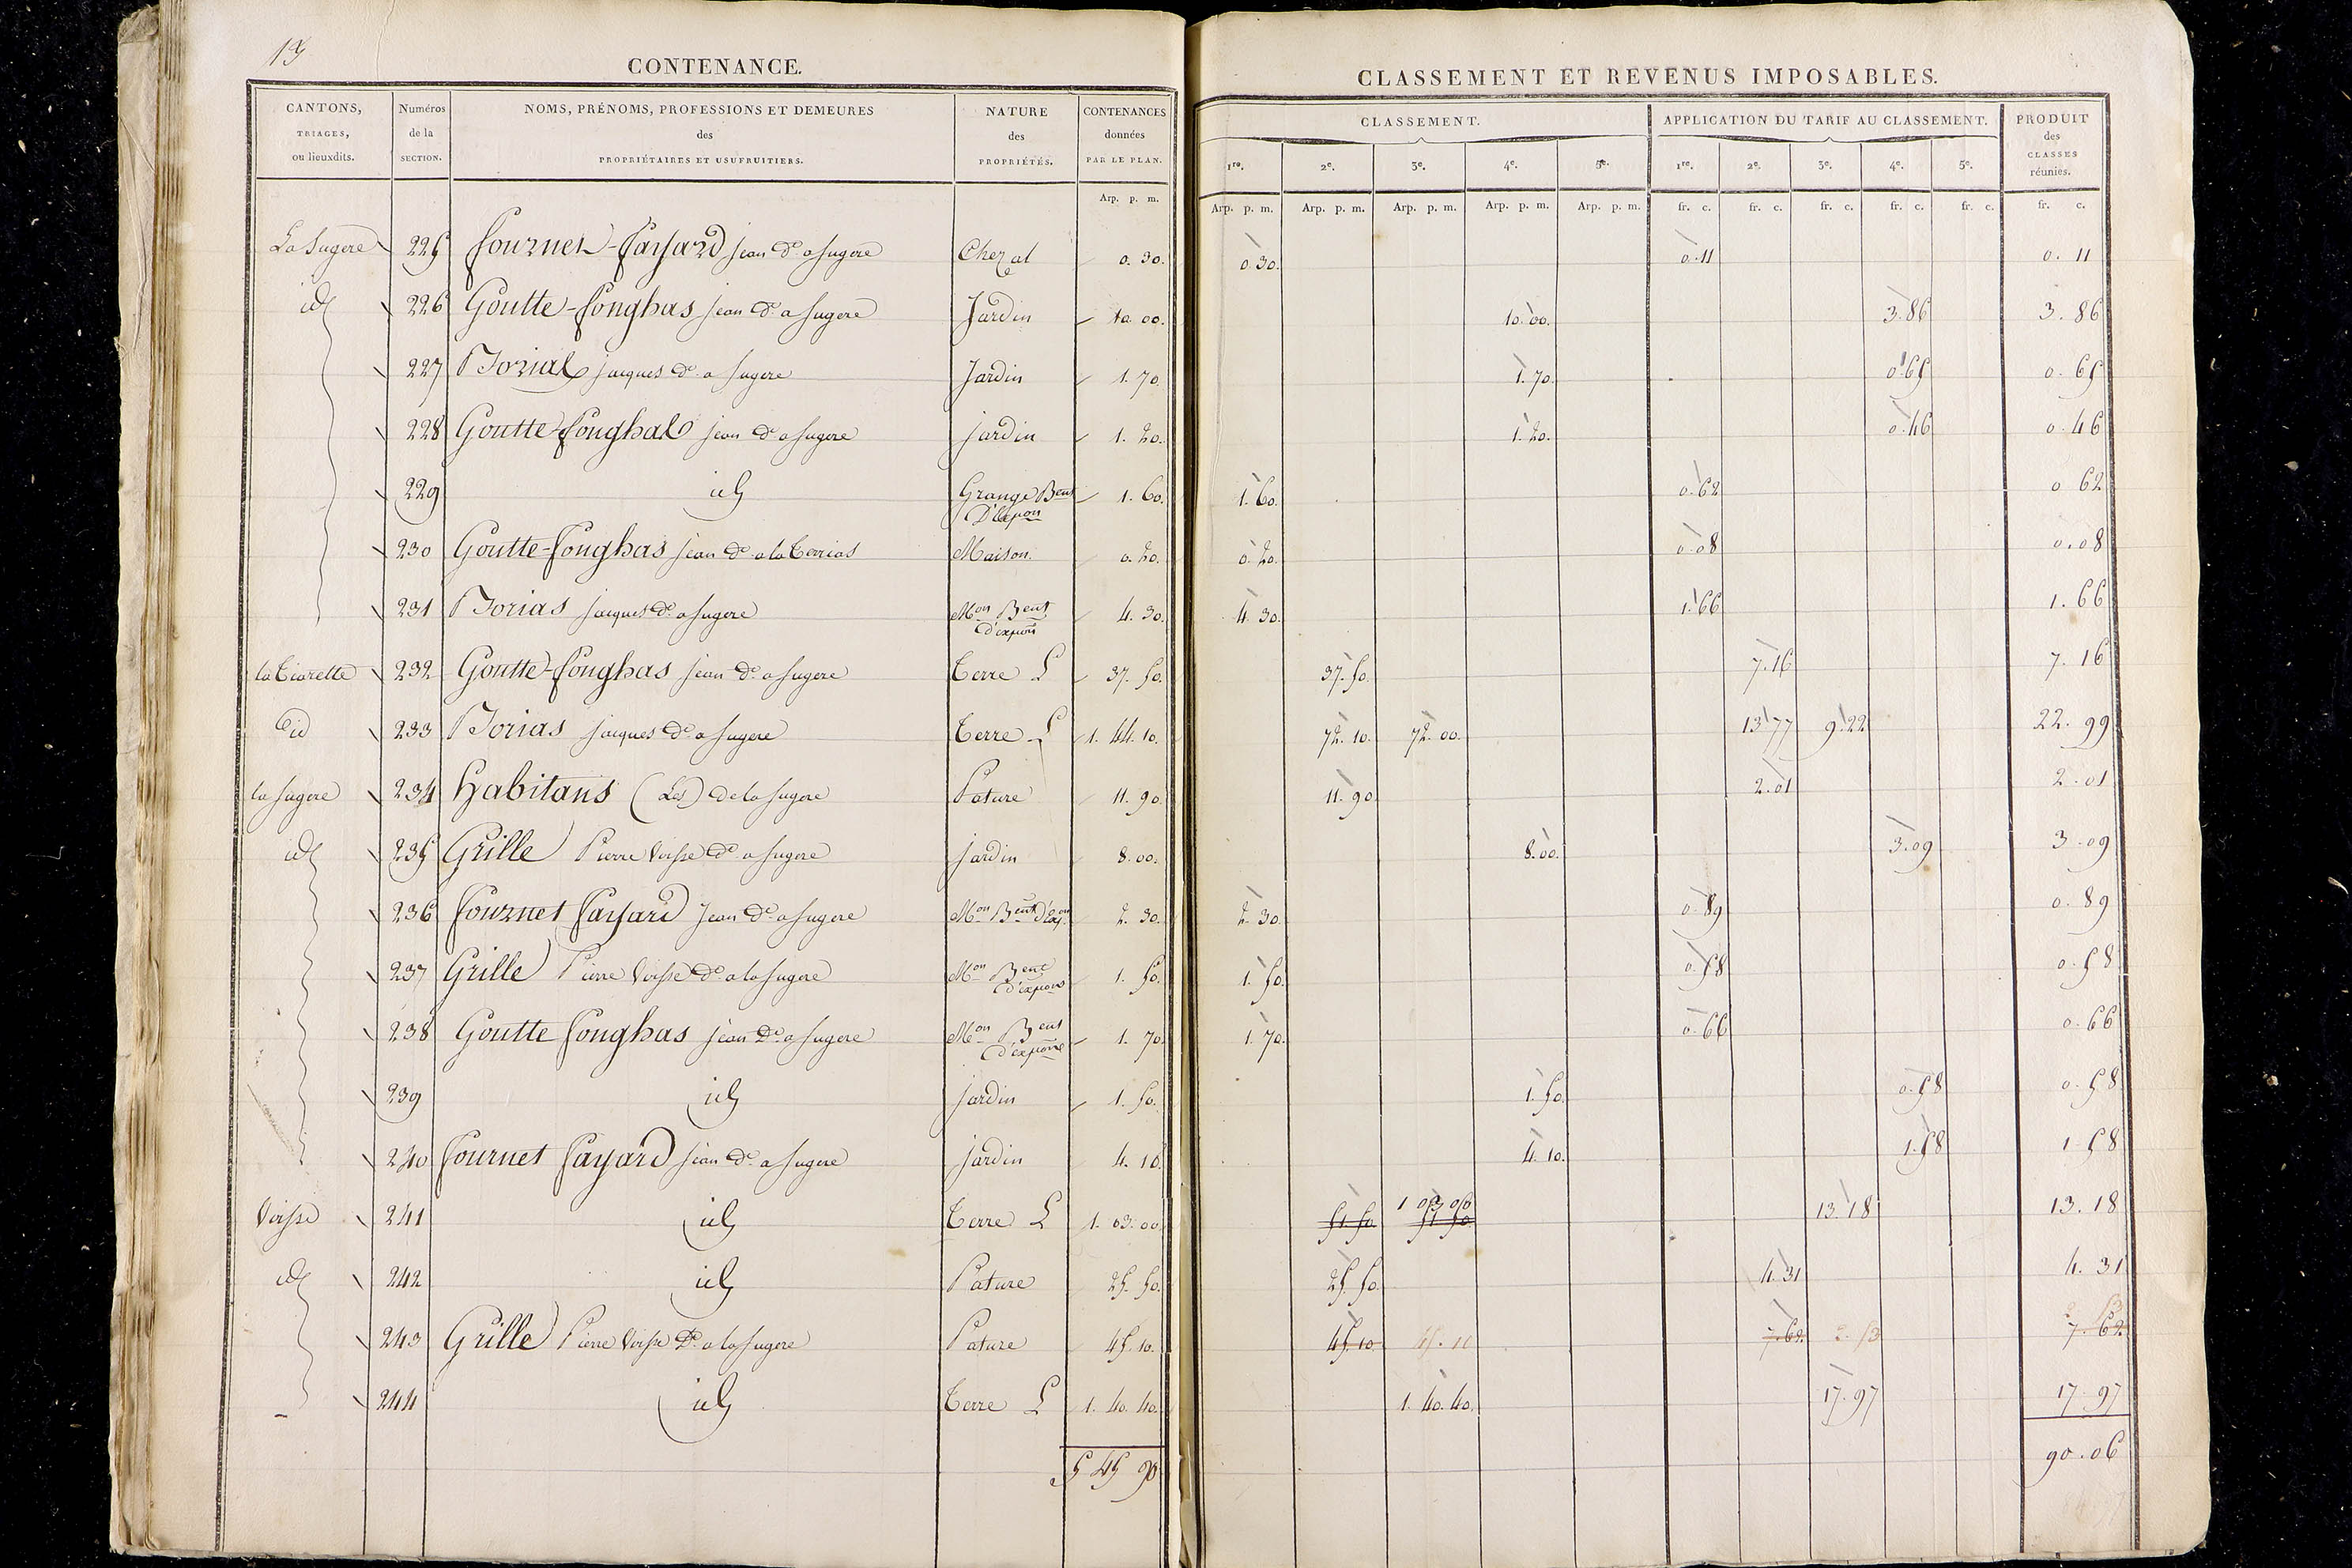 CONTENANCE.
CANTONS, TRIAGES, ou lieuxdits.
Numéros de la SECTION.
NOMS, PRÉNOMS, PROFESSIONS ET DEMEURES des PROPRIÉTAIRES ET USUFRUITIERS.
NATURE des PROPRIÉTÉS.
CONTENANCES données PAR LE PLAN.
Arp. p. m.
CLASSEMENT ET REVENUS IMPOSABLES.
CLASSEMENT.
APPLICATION DU TARIF AU CLASSEMENT.
PRODUIT des CLASSES réunies.
1re. 2e. 3e. 4e. 5e. 1re. 2e. 3e. 4e. 5e.
Arp. p. m. Arp. p. m. Arp. p. m. Arp. p. m. Arp. p. m. fr. c. fr. c. fr. c. fr. c. fr. c. fr. c.
La Sugere 225 Fournet-Fayard jean dt a Sugere Chezal 0. 30. 0 30. 0.11 0. 11
id 226 Goutte-Fonghas jean dt a Sugere Jardin 10. 00. 10. 00. 3.86 3. 86
227 jacques dt a Sugere Jardin 1. 70. 1. 70. 0.65 0. 65
228 Goutte-Fonghas jean dt a Sugere jardin 1. 20. 1. 20. 0.46 0. 46
229 id Grange Bent D'expon 1. 60. 1. 60. 0.62 0 62
230 Goutte-Fonghas jean dt a la Maison. 0. 20. 0. 20. 0.08 0.08
231 Borias jacques dt a Sugere Mon Bent d'expon 4. 30. 4. 30. 1.66 1. 66
232 Goutte-Fonghas jean dt a Sugere Terre L 37. 50. 37. 50. 7.16 7. 16
id 233 Borias jacques dt a Sugere Terre L 1. 44. 10. 72. 10. 72. 00. 13.77 9.22 22. 99
la Sugere 234 Habitans (Les) de la Sugere Pature 11. 90. 11. 90. 2.01 2.01
id 235 Grille Pierre Voisse dt a Sugere jardin 8. 00. 8. 00. 3.09 3.09
236 Fournet Fayard Jean dt a Sugere Mon Bent d'expon 2. 30. 2. 30. 0.89 0. 89
237 Grille Pierre Voisse dt a la Sugere Mon Bent d'expon 1. 50. 1. 50. 0.58 0. 58
238 Goutte Fonghas jean Dt a Sugere Mon Bent d'expon 1. 70. 1. 70. 0.66 0. 66
239 id jardin 1. 50. 1. 50. 0.58 0. 58
240 Fournet Fayard jean dt a Sugere jardin 4. 10. 4. 10. 1.58 1 58
Voisse 241 id Terre L 1. 03. 00. 51 50 1 03 00 51 50 13.18 13. 18
id 242 id Pature 25. 50. 25. 50. 4.31 4. 31
243 Grille Pierre Voisse Dt a la Sugere Pature 45. 10. 45. 10. 45. 10 7.62 7. 62
244 id Terre L 1. 40. 40. 1. 40. 40. 17.97 17. 97
5 45 90 90.06